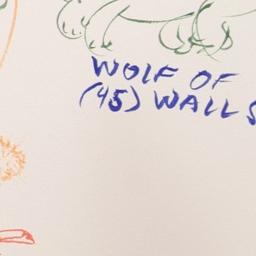 WOLF OF
(45) WALLS